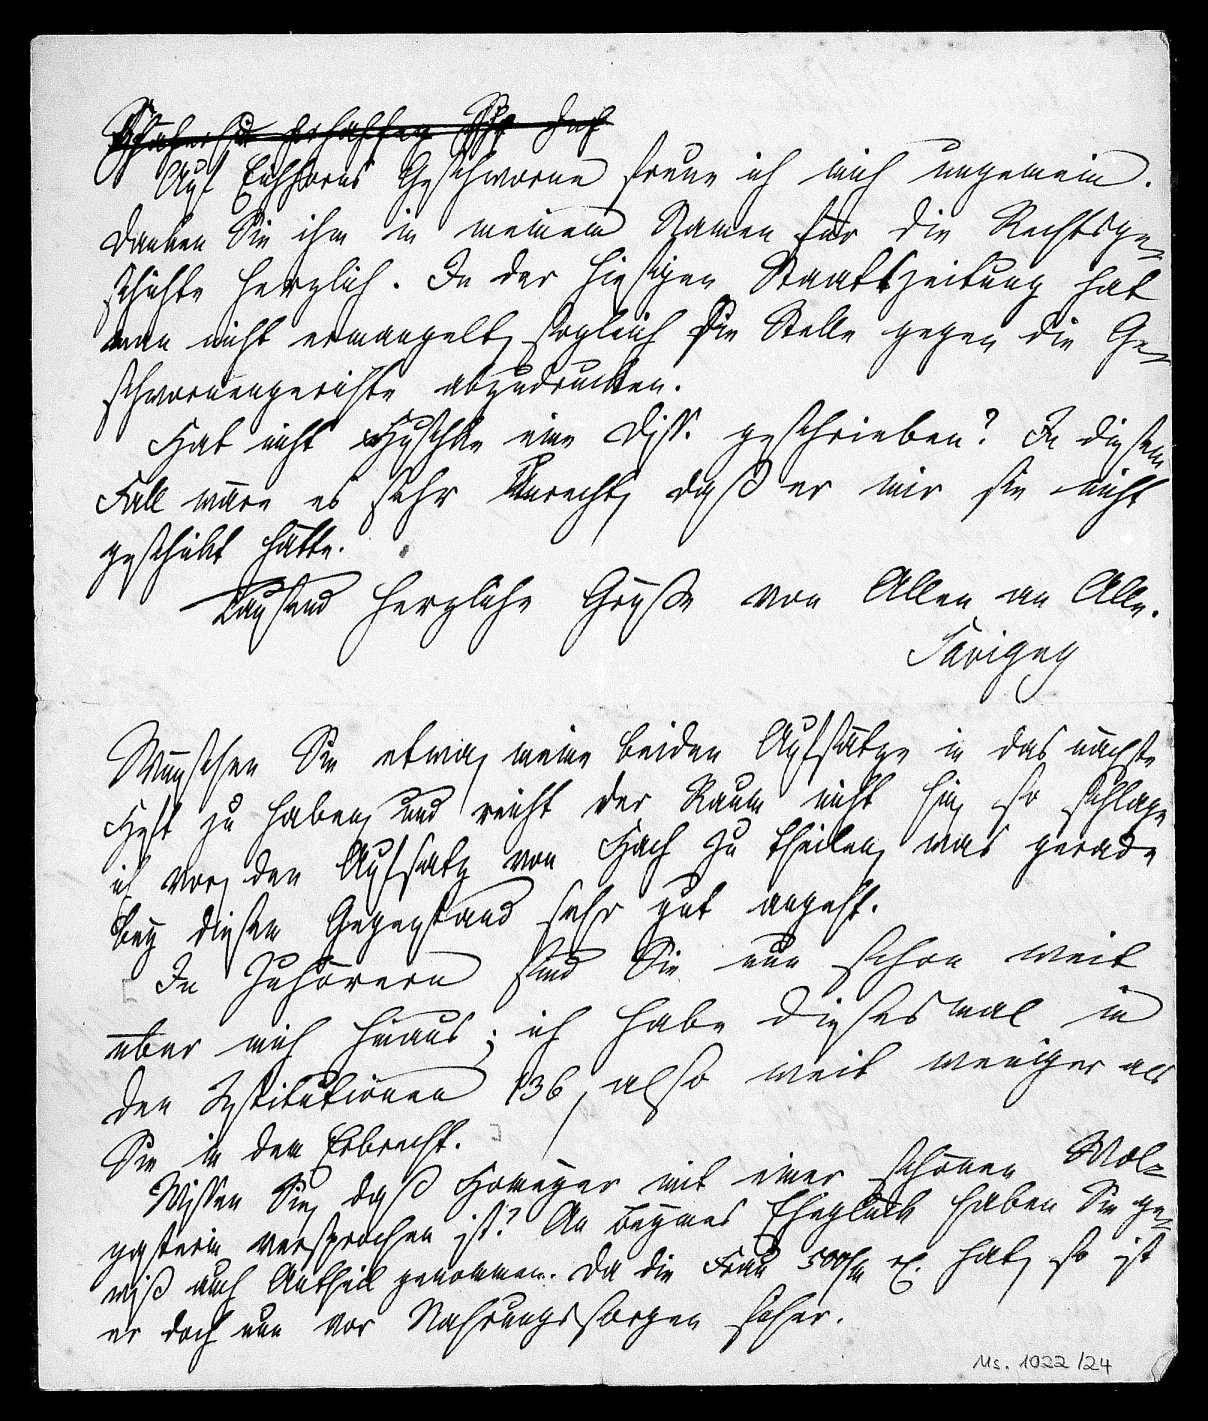 Auf Eichhorns Geschworne freue ich mich ungemein.
Danken Sie ihm in meinem Namen für die Rechtsge-
schichte herzlich. In der hiesigen Staatszeitung hat
man nicht ermangelt, sogleich die Stelle gegen die Ge-
schwornengerichte abzudrucken.
Hat nicht Huschke eine Diss. geschrieben? In diesem
Fall wäre es sehr Unrecht, daß er mir sie nicht
geschickt hätte.
Tausend herzliche Grüße von Allen an Alle.
Savigny
Wünschen Sie etwa, meine beiden Aufsätze in das nächste
Heft zu haben, und reicht der Raum nicht hin, so schlage
ich vor, den Aufsatz von Hach zu theilen, was gerade
bey diesem Gegenstand sehr gut angeht.
In Zuhörern sind Sie nun schon weit
über mich hinaus; ich habe diesesmal in
den Institutionen 136, also weit weniger als
Sie in dem Erbrecht.
Wissen Sie, daß Homeyer mit einer schönen Wol-
gasterin versprochen ist? An Beymes Eheglück haben Sie ge-
wiß auch Antheil genommen. Da die Frau 500/m rf. hat, so ist
er doch nun vor Nahrungssorgen sicher.
Ms. 1022/24